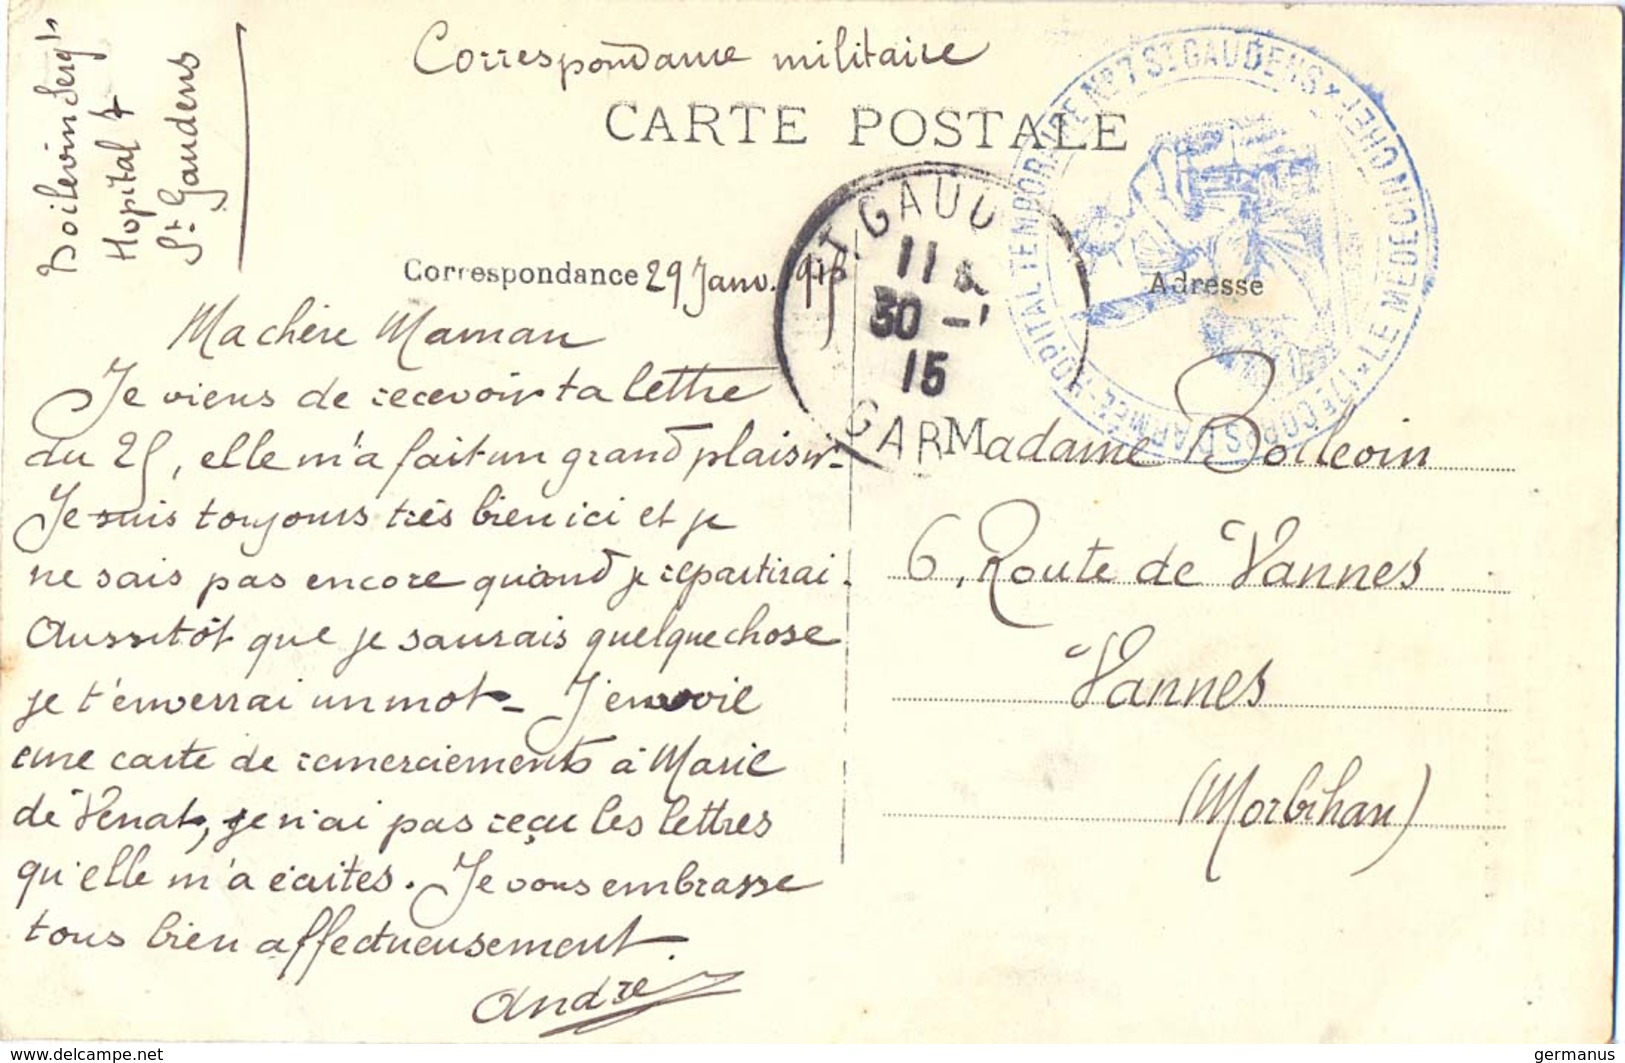 Boilevin Serg^t
Hopital 7
S^t Gaudens
Correspondance militaire
CARTE POSTALE
Correspondance 29 Janv. 1915
Ma chère Maman
Je viens de recevoir ta lettre
du 25, elle m'a fait un grand plaisir.
Je suis toujours très bien ici et je
ne sais pas encore quand je repartirai.
Aussitôt que je saurais quelque chose
je t'enverrai un mot - J'envoie
une carte de remerciements à Marie
de Venat, je n'ai pas reçu les lettres
qu'elle m'a écrites. Je vous embrasse
tous bien affectueusement.
André
ST GAUD
11
30 - 1
15
GAR
HOPITAL TEMPORAIRE N°7 ST GAUDENS * LE MEDECIN CHEF *
CORPS D'ARMÉE
Adresse
Madame Boilevin
6, Route de Vannes
Vannes
(Morbihan)
www.delcampe.net
germanus